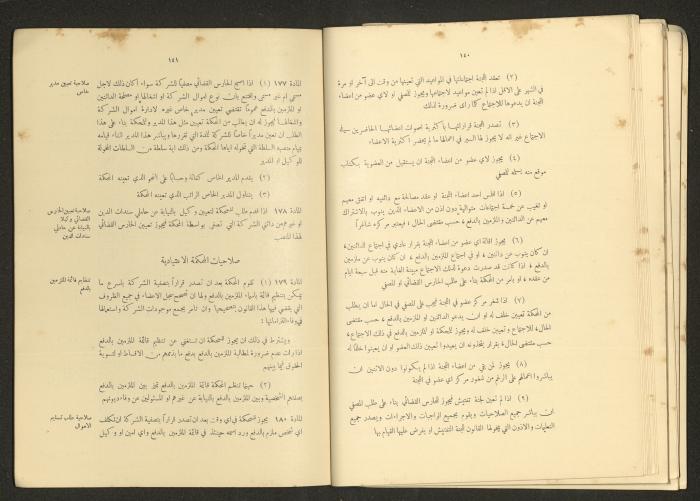 ١٤٠
(٢) تعقد اللجنة اجتماعاتها في المواعيد التي تعينها من وقت الى آخر او مرة
في الشهر على الاقل اذا لم تعين مواعيد لاجتماعها ويجوز للمصفي او لاي عضو من اعضاء
اللجنة ان يدعوها للاجتماع كلما رأى ضرورة لذلك
(٣) تصدر اللجنة قراراتها باكثرية اصوات اعضائها الحاضرين في
الاجتماع غير انه لا يجوز لها السير في اعمالها ما لم يحضر اكثرية الاعضاء
(٤) يجوز لاي عضو من اعضاء اللجنة ان يستقيل من العضوية بكتاب
موقع منه يسلمه للمصفي
(٥) اذا افلس احد اعضاء اللجنة او عقد مصالحة مع دائنيه او اتفق معهم
او تغيب عن خمسة اجتماعات متوالية بدون اذن من الاعضاء الذين ينوب بالاشتراك
معهم عن الدائنين والملزمين بالدفع، حسب مقتضى الحال، فيعتبر مركزه شاغراً
(٦) يجوز اقالة اي عضو من اعضاء اللجنة بقرار عادي في اجتماع الدائنين،
ان كان ينوب عن دائنين، او في اجتماع الملزمين بالدفع، ان كان ينوب عن ملزمين
بالدفع، اذا كانت قد صدرت دعوة لذلك الاجتماع مبينة الغاية منه قبل سبعة ايام
من عقده، او بامر من المحكمة بناء على طلب الحارس القضائي او المصفي
(٧) اذا شغر مركز عضو في اللجنة فيجب على المصفي في الحال اما ان يطلب
من المحكمة تعيين خلف له او ان يدعو الدائنين او الملزمين بالدفع، حسب مقتضى
الحال، للاجتماع وتعيين خلف له ويجوز للمحكمة او للملزمين بالدفع في ذلك الاجتماع،
حسب مقتضى الحال، بقرار يتخذونه ان يعيدوا تعيين ذلك العضو او ان يعينوا خلفاً له
(٨) يجوز لمن بقي من اعضاء اللجنة اذا لم يكونوا دون الاثنين ان
يباشروا اعمالهم على الرغم من شغور مركز اي عضو في اللجنة
(٢) اذا لم تعين لجنة تفتيش فيجوز للحارس القضائي بناء على طلب المصفي
ان يباشر جميع الصلاحيات ويقوم بجميع الواجبات والاجراءات ويصدر جميع
التعليمات والاذون التي يخولها القانون للجنة التفتيش او يفرض عليها القيام بها
١٤١
صلاحية تعيين مدير
خاص
المادة ١٧٧ (١) اذا اصبح الحارس القضائي مصفياً للشركة سواء أكان ذلك لاجل
مسمى ام غير مسمى واقتنع بان نوع اموال الشركة او اشغالها او مصلحة الدائنين
او الملزمين بالدفع عموماً تقتضي تعيين مدير خاص غيره لادارة اموال الشركة
واشغالها فيجوز له ان يطلب من المحكمة تعيين مثل هذا المدير وللمحكمة بناء على هذا
الطلب ان تعين مديراً خاصاً للشركة للمدة التي تقررها ويباشر هذا المدير اثناء قيامه
بمهام منصبه السلطة التي تخوله اياها المحكمة ومن ذلك اية سلطة من السلطات المخولة
للوكيل او المدير
(٢) يقدم المدير الخاص كفالة وحساباً على النحو الذي تعينه المحكمة
(٣) يتناول المدير الخاص الراتب الذي تعينه المحكمة
صلاحية تعيين الحارس
القضائي وكيلا
بالنيابة عن حاملي
سندات الدين
المادة ١٧٨ اذا قدم طلب للمحكمة لتعيين وكيل بالنيابة عن حاملي سندات الدين
او غيرهم من دائني الشركة التي تصفى بواسطة المحكمة فيجوز تعيين الحارس القضائي
لهذا المنصب
صلاحيات المحكمة الاعتيادية
تنظيم قائمة الملزمين
بالدفع
المادة ١٧٩ (١) تقوم المحكمة بعد ان تصدر قراراً بتصفية الشركة باسرع ما
يمكن بتنظيم قائمة باسماء الملزمين بالدفع ولها ان تصحح سجل الاعضاء في جميع الظروف
التي يقضي فيها هذا القانون بتصحيحها وان تأمر بجمع موجودات الشركة واستعمالها
في وفاء التزاماتها:
ويشترط في ذلك ان يجوز للمحكمة ان تستغني عن تنظيم قائمة الملزمين بالدفع
اذا رأت عدم ضرورة لمطالبة الملزمين بالدفع بدفع ما بذمتهم من الاقساط او لتسوية
الحقوق فيما بينهم
(٢) حينما تنظم المحكمة قائمة الملزمين بالدفع تميز بين الملزمين بالدفع
بصفتهم الشخصية وبين الملزمين بالدفع بالنيابة عن غيرهم او المسئولين عن وفاء ديونهم
صلاحية طلب تسليم
الاموال
المادة ١٨٠ يجوز للمحكمة في اي وقت بعد ان تصدر قراراً بتصفية الشركة ان تكلف
اي شخص ملزم بالدفع ورد اسمه حينئذ في قائمة الملزمين بالدفع واي امين او وكيل